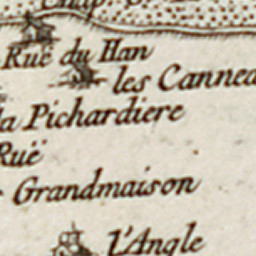 Ruë du Han
les Cannea
la Pichardiere
Ruë
Grandmaison
L'Angle